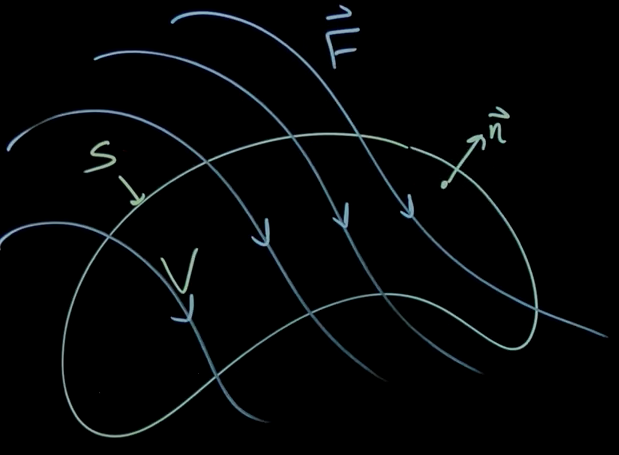 F⃗
n⃗
S
V